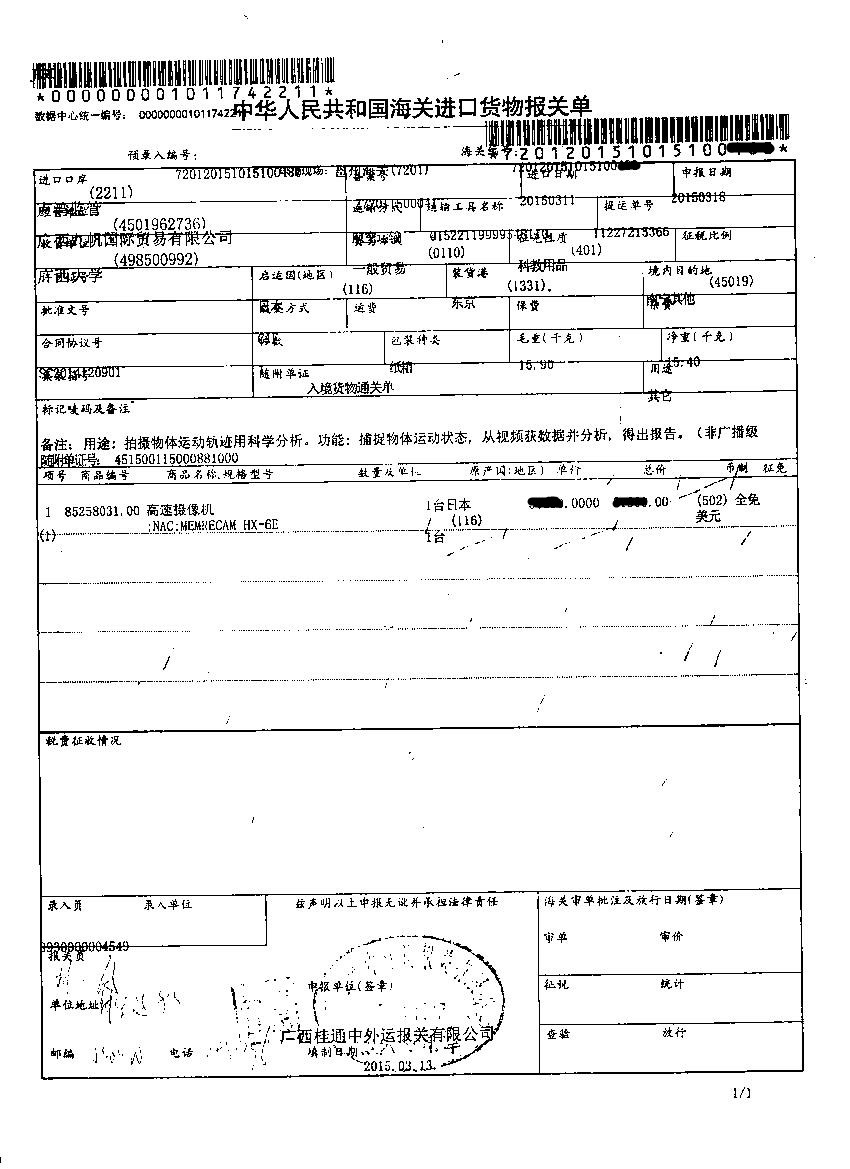 *000000001011742211*
数据中心统一编号: 0000000010117422
中华人民共和国海关进口货物报关单
预录入编号:
海关编号:
*20120151015100
进口口岸
(2211)
备案号
进口日期
20150311
申报日期
20150318
(4501962736)
运输方式
运输工具名称
提运单号
广西九帆国际贸易有限公司
(498500992)
(0110)
征免性质
(401)
11227215366
征税比例
广西大学
启运国(地区)
(116)
一般贸易
装货港
(1331)
科教用品
境内目的地
(45019)
批准文号
成交方式
运费
东京
保费
合同协议号
件数
包装种类
毛重(千克)
净重(千克)
随附单证
入境货物通关单
纸箱
15.90
15.40
用途
其它
标记唛码及备注
备注: 用途: 拍摄物体运动轨迹用科学分析。功能: 捕捉物体运动状态, 从视频获数据并分析, 得出报告。(非广播级
随附单证号: 451500115000881000
项号 商品编号 商品名称.规格型号 数量及单位 原产国(地区) 单价 总价 币制 征免
1 85258031.00 高速摄像机 1台日本 .0000 .00 (502) 全免
(1) ;NAC;MEMRECAM HX-6E (116) 美元
1台
税费征收情况
录入员 录入单位 兹声明以上申报无讹并承担法律责任 海关审单批注及放行日期(签章)
审单 审价
8930000004549
报关员
申报单位(签章)
征税 统计
单位地址
广西桂通中外运报关有限公司
查验 放行
邮编 电话 填制日期
2015.03.13.
1/1